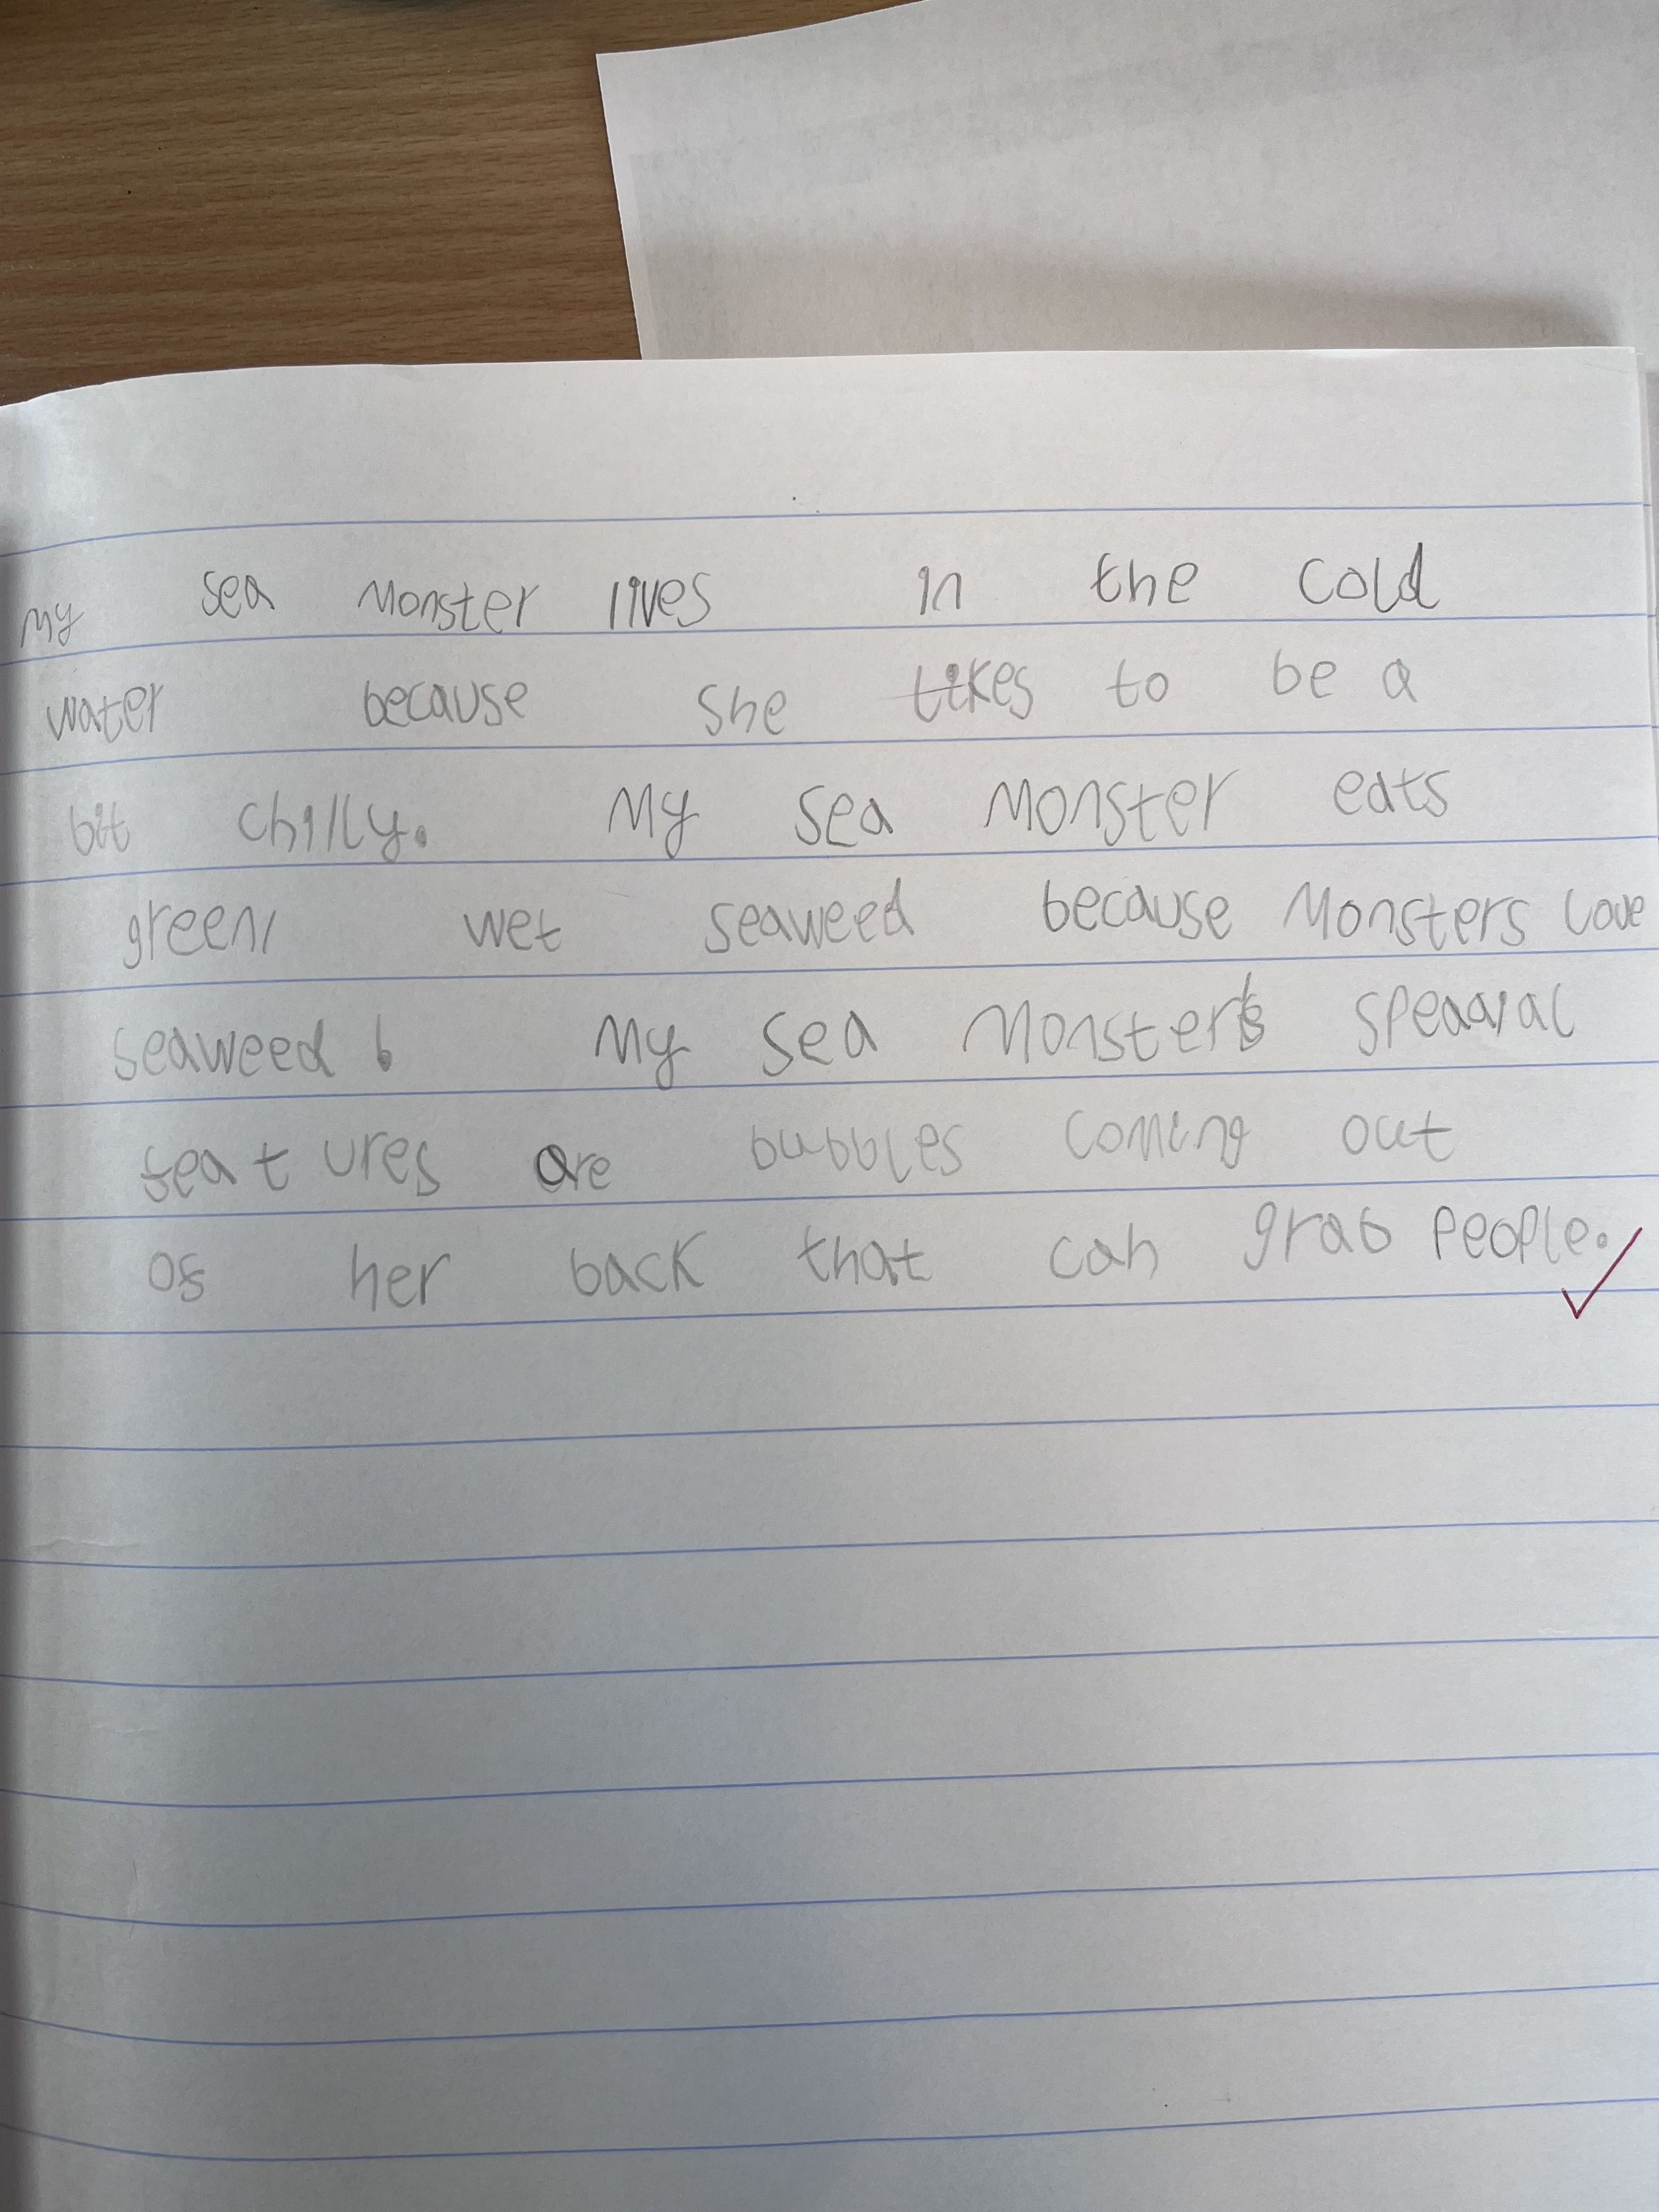 My sea Monster lives in the cold
water because she likes to be a
bit chilly. My sea Monster eats
green, wet seaweed because Monsters love
seaweed! My sea Monster's speaaial
features are bubbles coming out
of her back that can grab people.